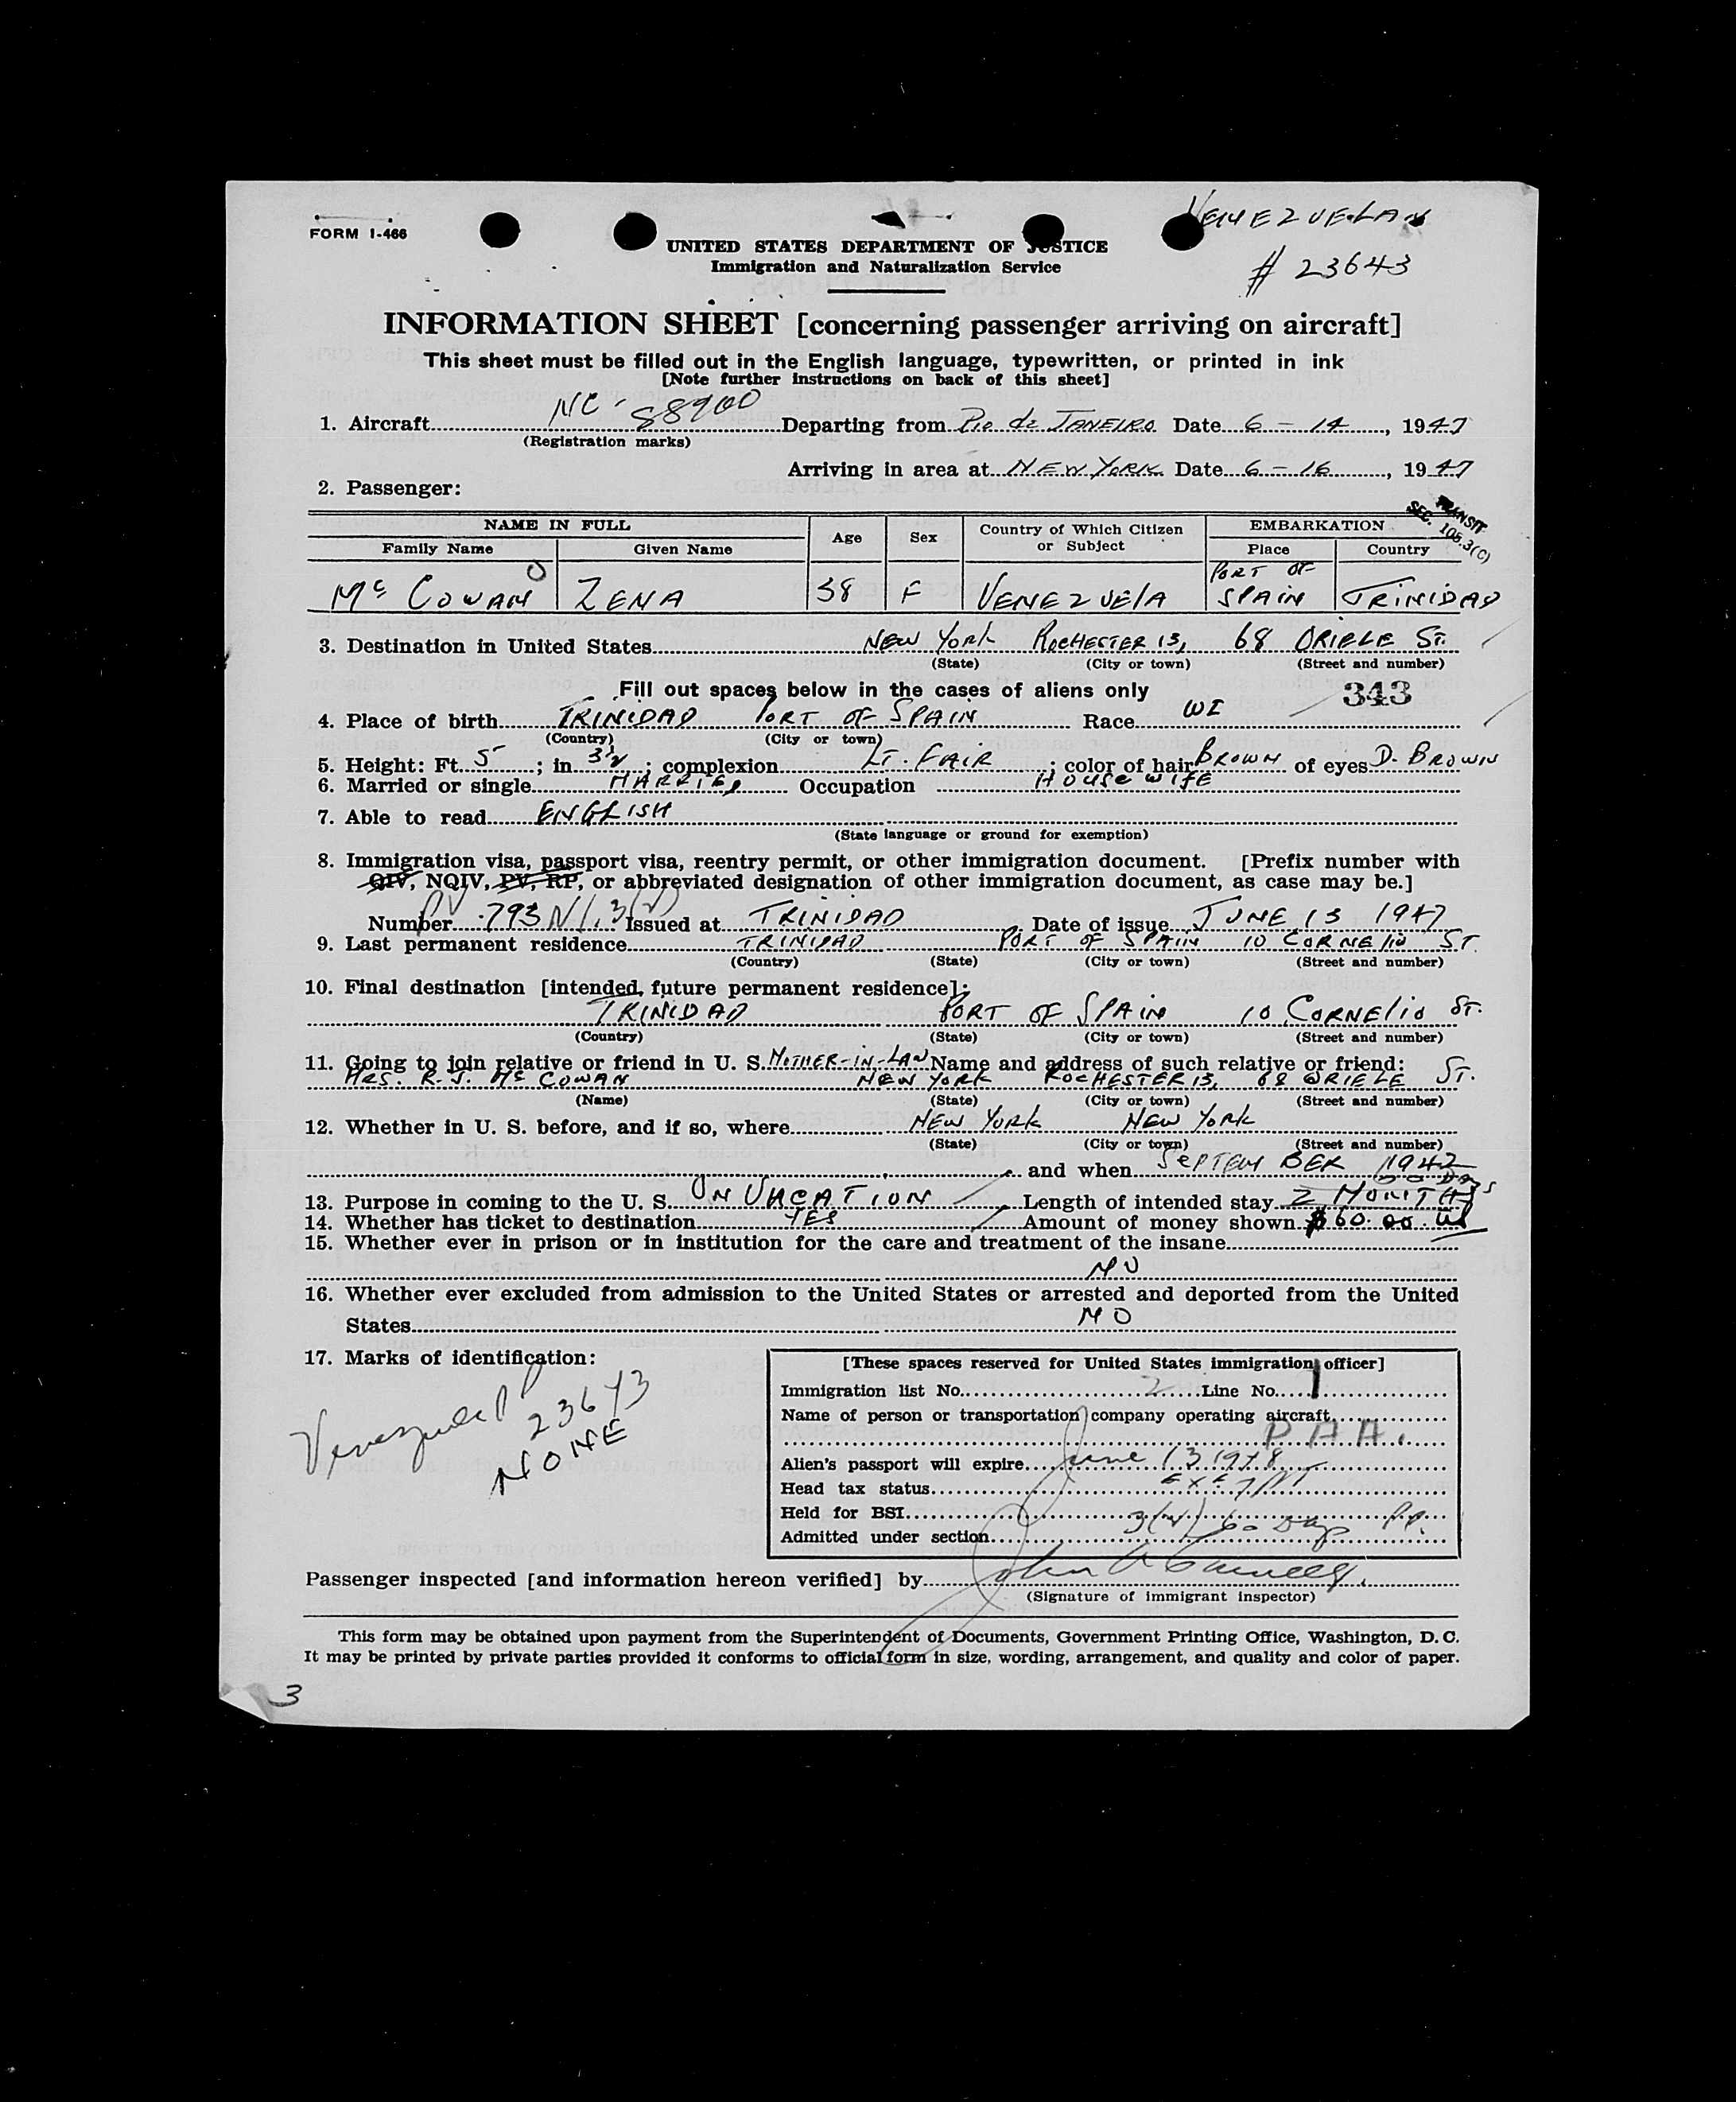 VENEZUELAN
FORM I-466
UNITED STATES DEPARTMENT OF JUSTICE
Immigration and Naturalization Service
# 23643
INFORMATION SHEET [concerning passenger arriving on aircraft]
This sheet must be filled out in the English language, typewritten, or printed in ink
[Note further instructions on back of this sheet]
1. Aircraft NC-88900 Departing from Rio de JANEIRO Date 6-14, 1947
(Registration marks)
Arriving in area at NEW YORK Date 6-16, 1947
2. Passenger:
TRANSIT
SEC. 105.3(C)
NAME IN FULL Age Sex Country of Which Citizen or Subject EMBARKATION
Family Name Given Name Place Country
Mc COWAN ZENA 38 F VENEZUELA PORT OF SPAIN TRINIDAD
3. Destination in United States NEW YORK ROCHESTER 13, 68 ORIELE ST.
(State) (City or town) (Street and number)
Fill out spaces below in the cases of aliens only 343
4. Place of birth TRINIDAD PORT OF SPAIN Race WI
(Country) (City or town)
5. Height: Ft. 5; in 3½; complexion LT. FAIR; color of hair BROWN of eyes D. BROWN
6. Married or single MARRIED Occupation HOUSEWIFE
7. Able to read ENGLISH
(State language or ground for exemption)
8. Immigration visa, passport visa, reentry permit, or other immigration document. [Prefix number with
QIV, NQIV, PV, RP, or abbreviated designation of other immigration document, as case may be.]
Number PV 793 Issued at TRINIDAD Date of issue JUNE 13 1947
9. Last permanent residence TRINIDAD PORT OF SPAIN 10 CORNELIO ST.
(Country) (State) (City or town) (Street and number)
10. Final destination [intended future permanent residece]:
TRINIDAD PORT OF SPAIN 10 CORNELIO ST.
(Country) (State) (City or town) (Street and number)
11. Going to join relative or friend in U. S. MOTHER-IN-LAW Name and address of such relative or friend:
MRS. R. J. Mc COWAN NEW YORK ROCHESTER 13, 68 ORIELE ST.
(Name) (State) (City or town) (Street and number)
12. Whether in U. S. before, and if so, where NEW YORK NEW YORK
(State) (City or town) (Street and number)
and when SEPTEMBER 1942
60 Days
13. Purpose in coming to the U. S. ON VACATION Length of intended stay 2 MONTHS
14. Whether has ticket to destination YES Amount of money shown $60.00
15. Whether ever in prison or in institution for the care and treatment of the insane
NO
16. Whether ever excluded from admission to the United States or arrested and deported from the United
States NO
17. Marks of identification:
23643
NONE
[These spaces reserved for United States immigration officer]
Immigration list No. 2 Line No. 1
Name of person or transportation company operating aircraft
P A A.
Alien's passport will expire June 13 1948
Head tax status EXEMPT
Held for BSI
Admitted under section 3(2) 60 Days P.P.
Passenger inspected [and information hereon verified] by John A
(Signature of immigrant inspector)
This form may be obtained upon payment from the Superintendent of Documents, Government Printing Office, Washington, D. C.
It may be printed by private parties provided it conforms to official form in size, wording, arrangement, and quality and color of paper.
3